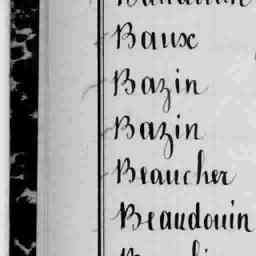 Baux
Bazin
Bazin
Beaucher
Beaudouin